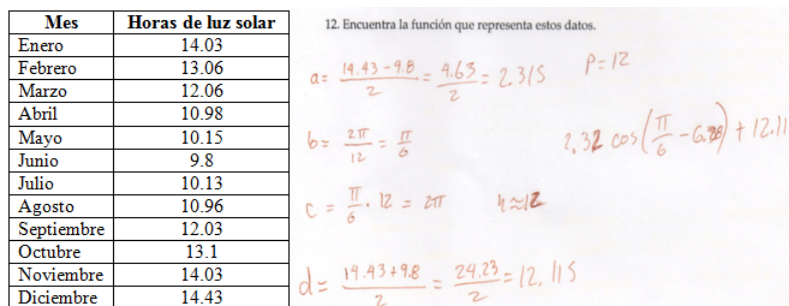 Mes Horas de luz solar
Enero 14.03
Febrero 13.06
Marzo 12.06
Abril 10.98
Mayo 10.15
Junio 9.8
Julio 10.13
Agosto 10.96
Septiembre 12.03
Octubre 13.1
Noviembre 14.03
Diciembre 14.43
12. Encuentra la función que representa estos datos.
a = (14.43 - 9.8)/2 = 4.63/2 = 2.315 P = 12
b = 2π/12 = π/6 2.32 cos(π/6 - 6.28) + 12.11
c = π/6 · 12 = 2π h ≈ 12
d = (14.43 + 9.8)/2 = 24.23/2 = 12.115